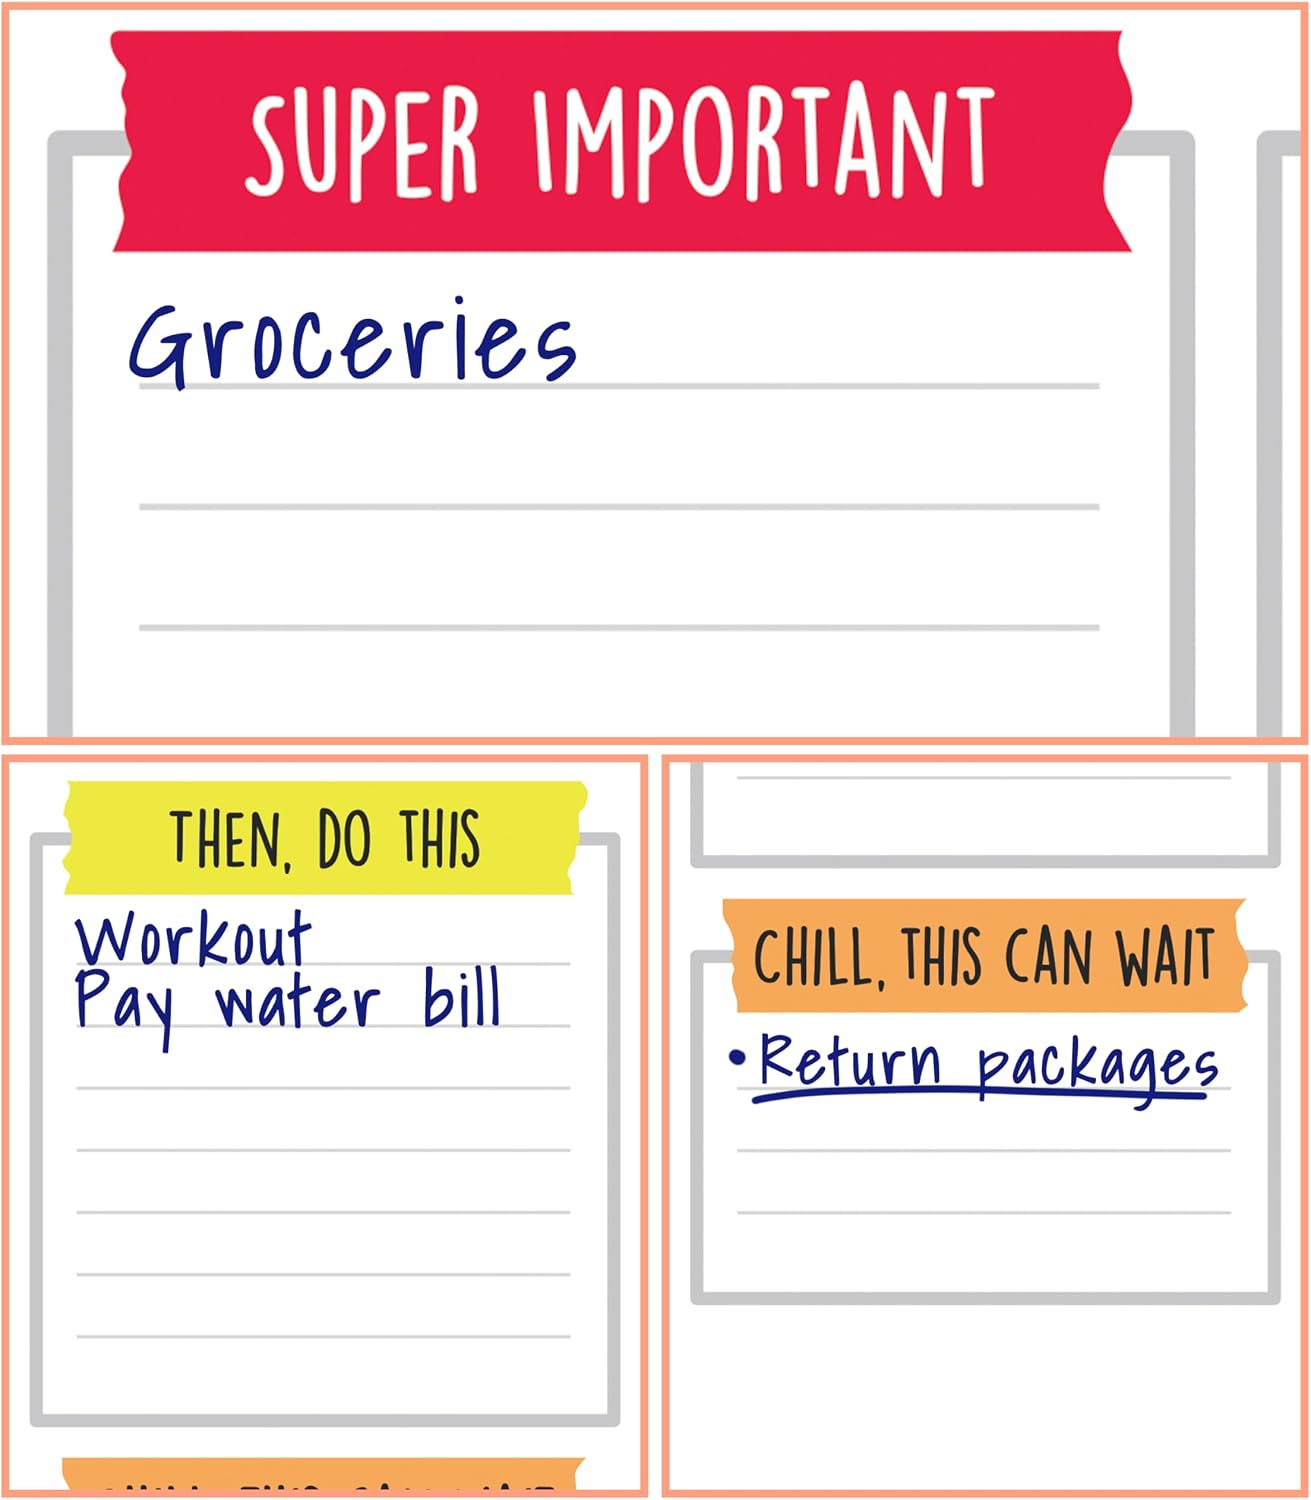 SUPER IMPORTANT
Groceries
THEN, DO THIS
Workout
Pay water bill
CHILL, THIS CAN WAIT
CHILL, THIS CAN WAIT
• Return packages